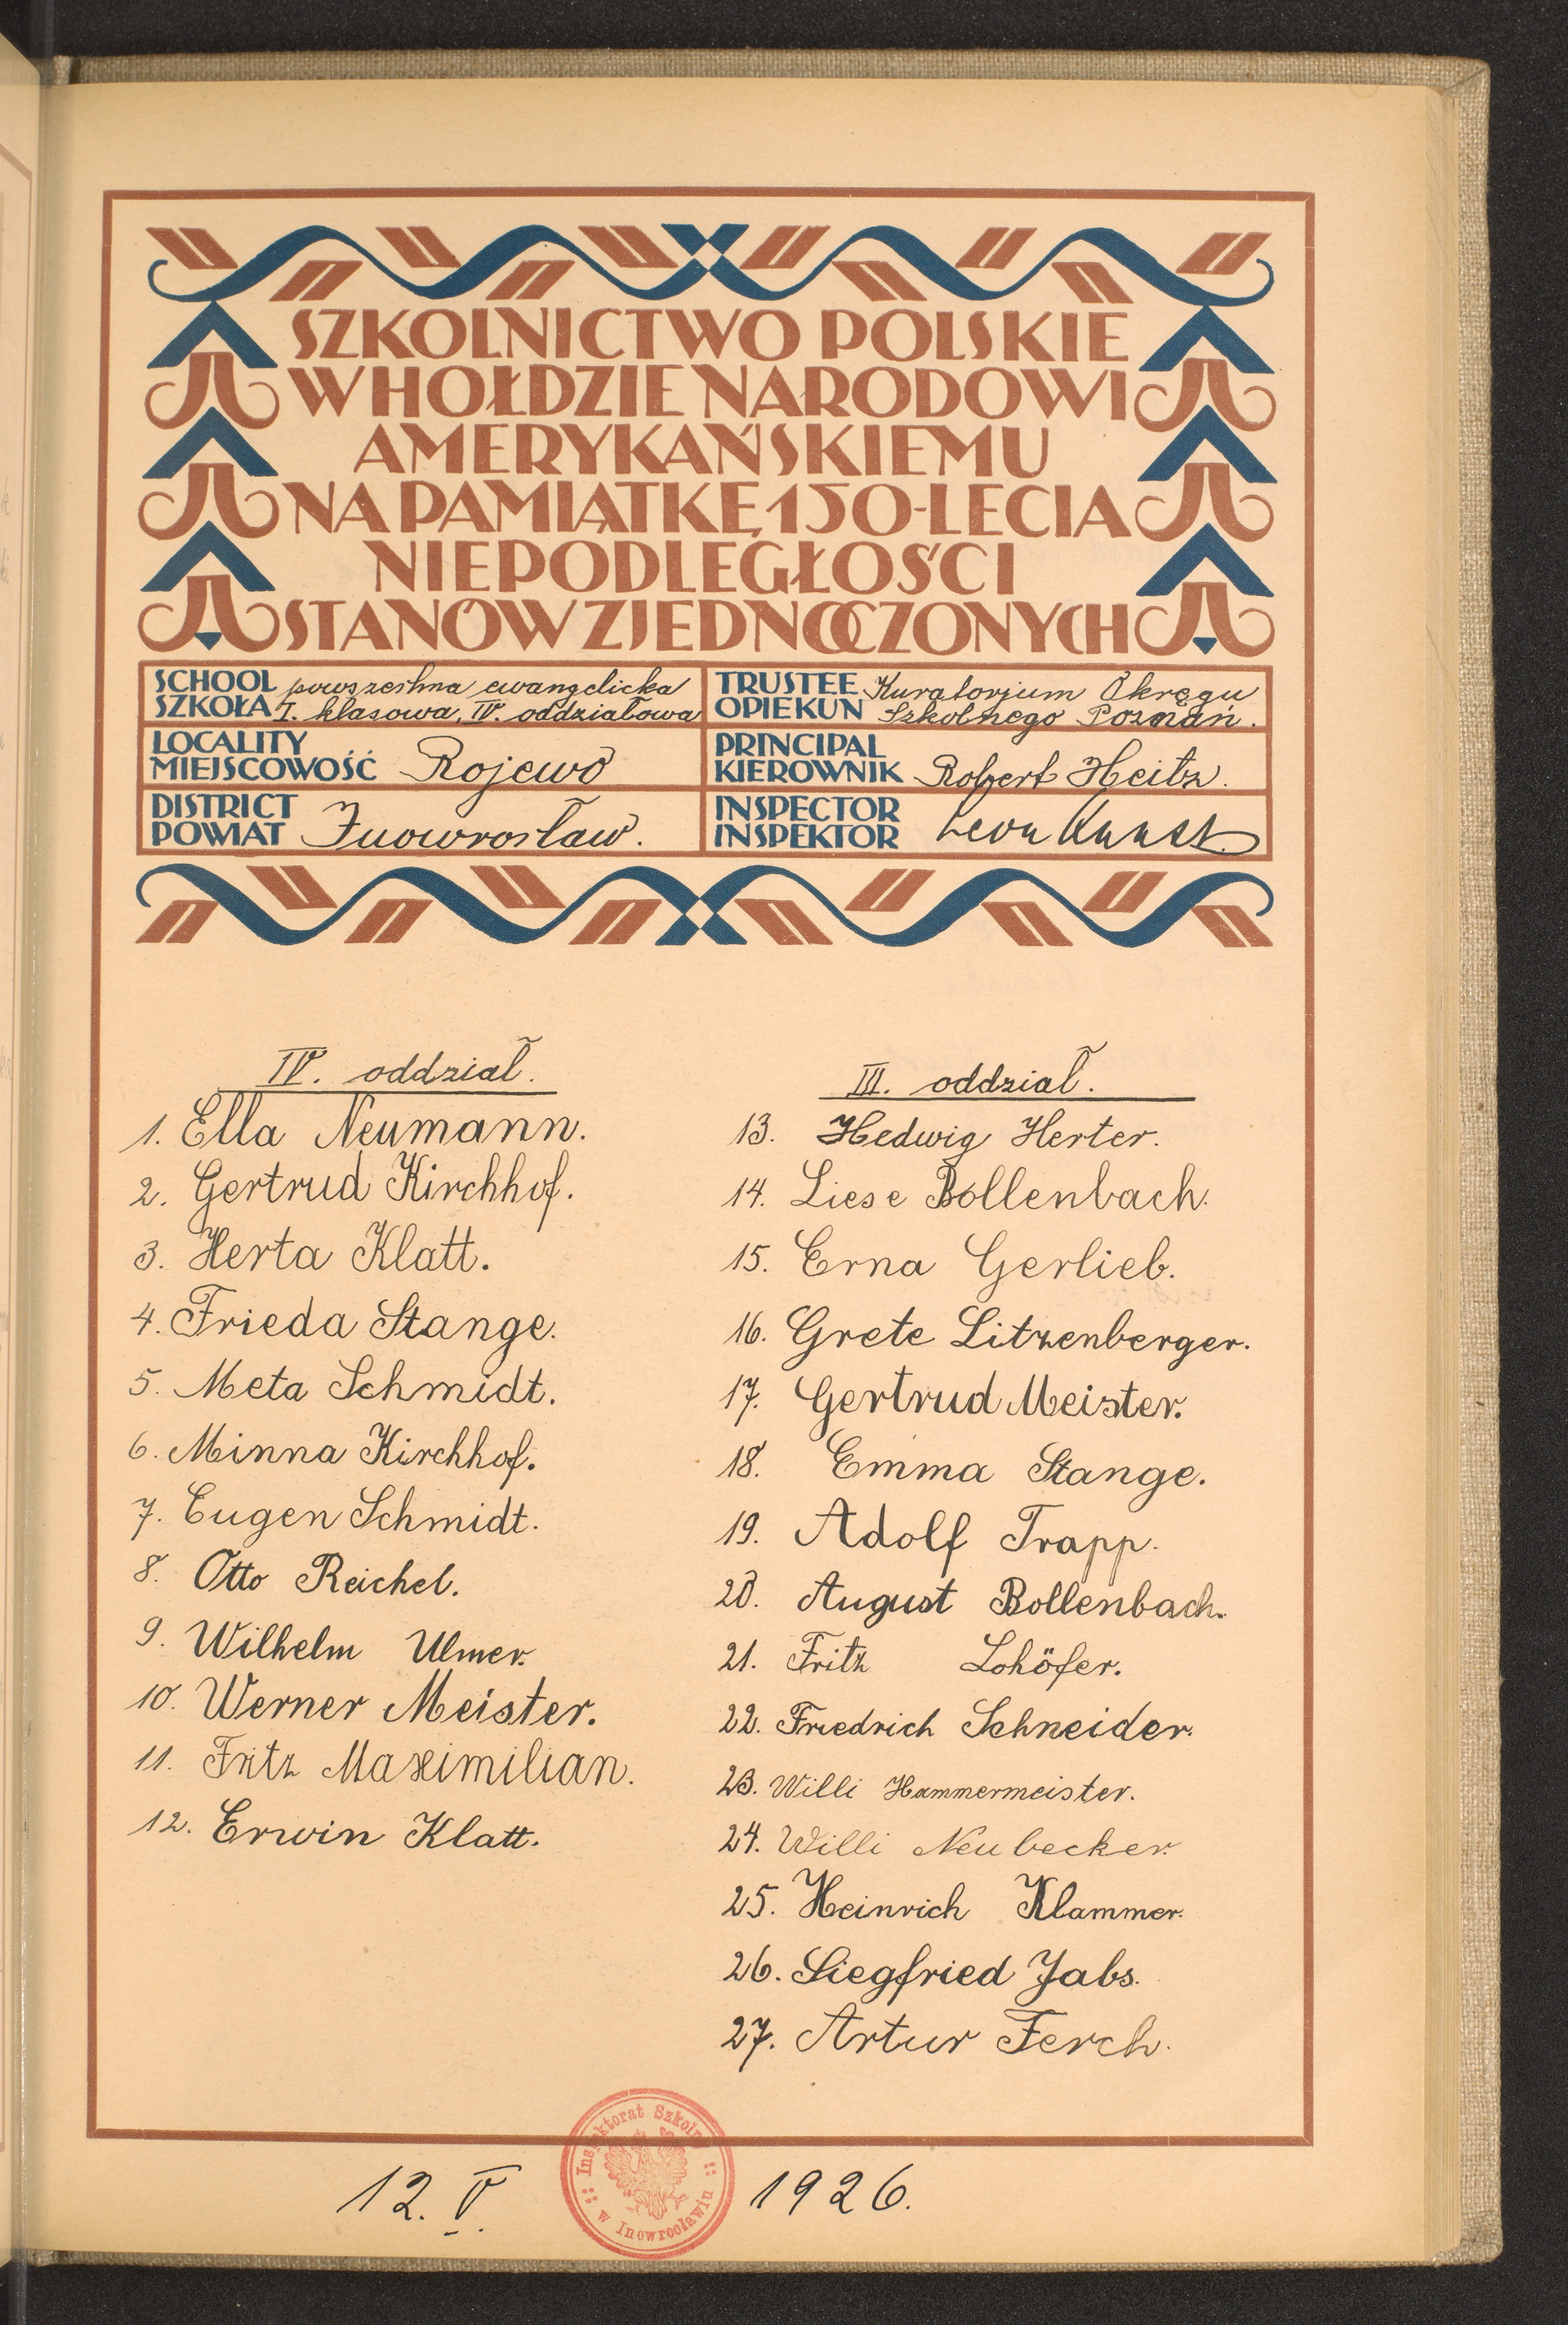 SZKOLNICTWO POLSKIE
W HOŁDZIE NARODOWI
AMERYKAŃSKIEMU
NA PAMIĄTKĘ 150-LECIA
NIEPODLEGŁOŚCI
STANÓW ZJEDNOCZONYCH
SCHOOL SZKOŁA powszechna ewangelicka
I. klasowa, IV. oddziałowa
TRUSTEE OPIEKUN Kuratorjum Okręgu
Szkolnego Poznań.
LOCALITY MIEJSCOWOŚĆ Rojewo
PRINCIPAL KIEROWNIK Robert Heitz.
DISTRICT POWIAT Inowrocław.
INSPECTOR INSPEKTOR Leon Kunst
IV. oddział.
1. Ella Neumann.
2. Gertrud Kirchhof.
3. Herta Klatt.
4. Frieda Stange.
5. Meta Schmidt.
6. Minna Kirchhof.
7. Eugen Schmidt.
8. Otto Reichel.
9. Wilhelm Ulmer.
10. Werner Meister.
11. Fritz Maximilian.
12. Erwin Klatt.
III. oddział.
13. Hedwig Herter.
14. Liese Bollenbach.
15. Erna Gerlieb.
16. Grete Litzenberger.
17. Gertrud Meister.
18. Emma Stange.
19. Adolf Trapp.
20. August Bollenbach.
21. Fritz Lohöfer.
22. Friedrich Schneider.
23. Willi Hammermeister.
24. Willi Neubecker.
25. Heinrich Klammer.
26. Siegfried Jabs.
27. Artur Ferch.
12. V. 1926.
Inspektorat Szkolny
w Inowrocławiu